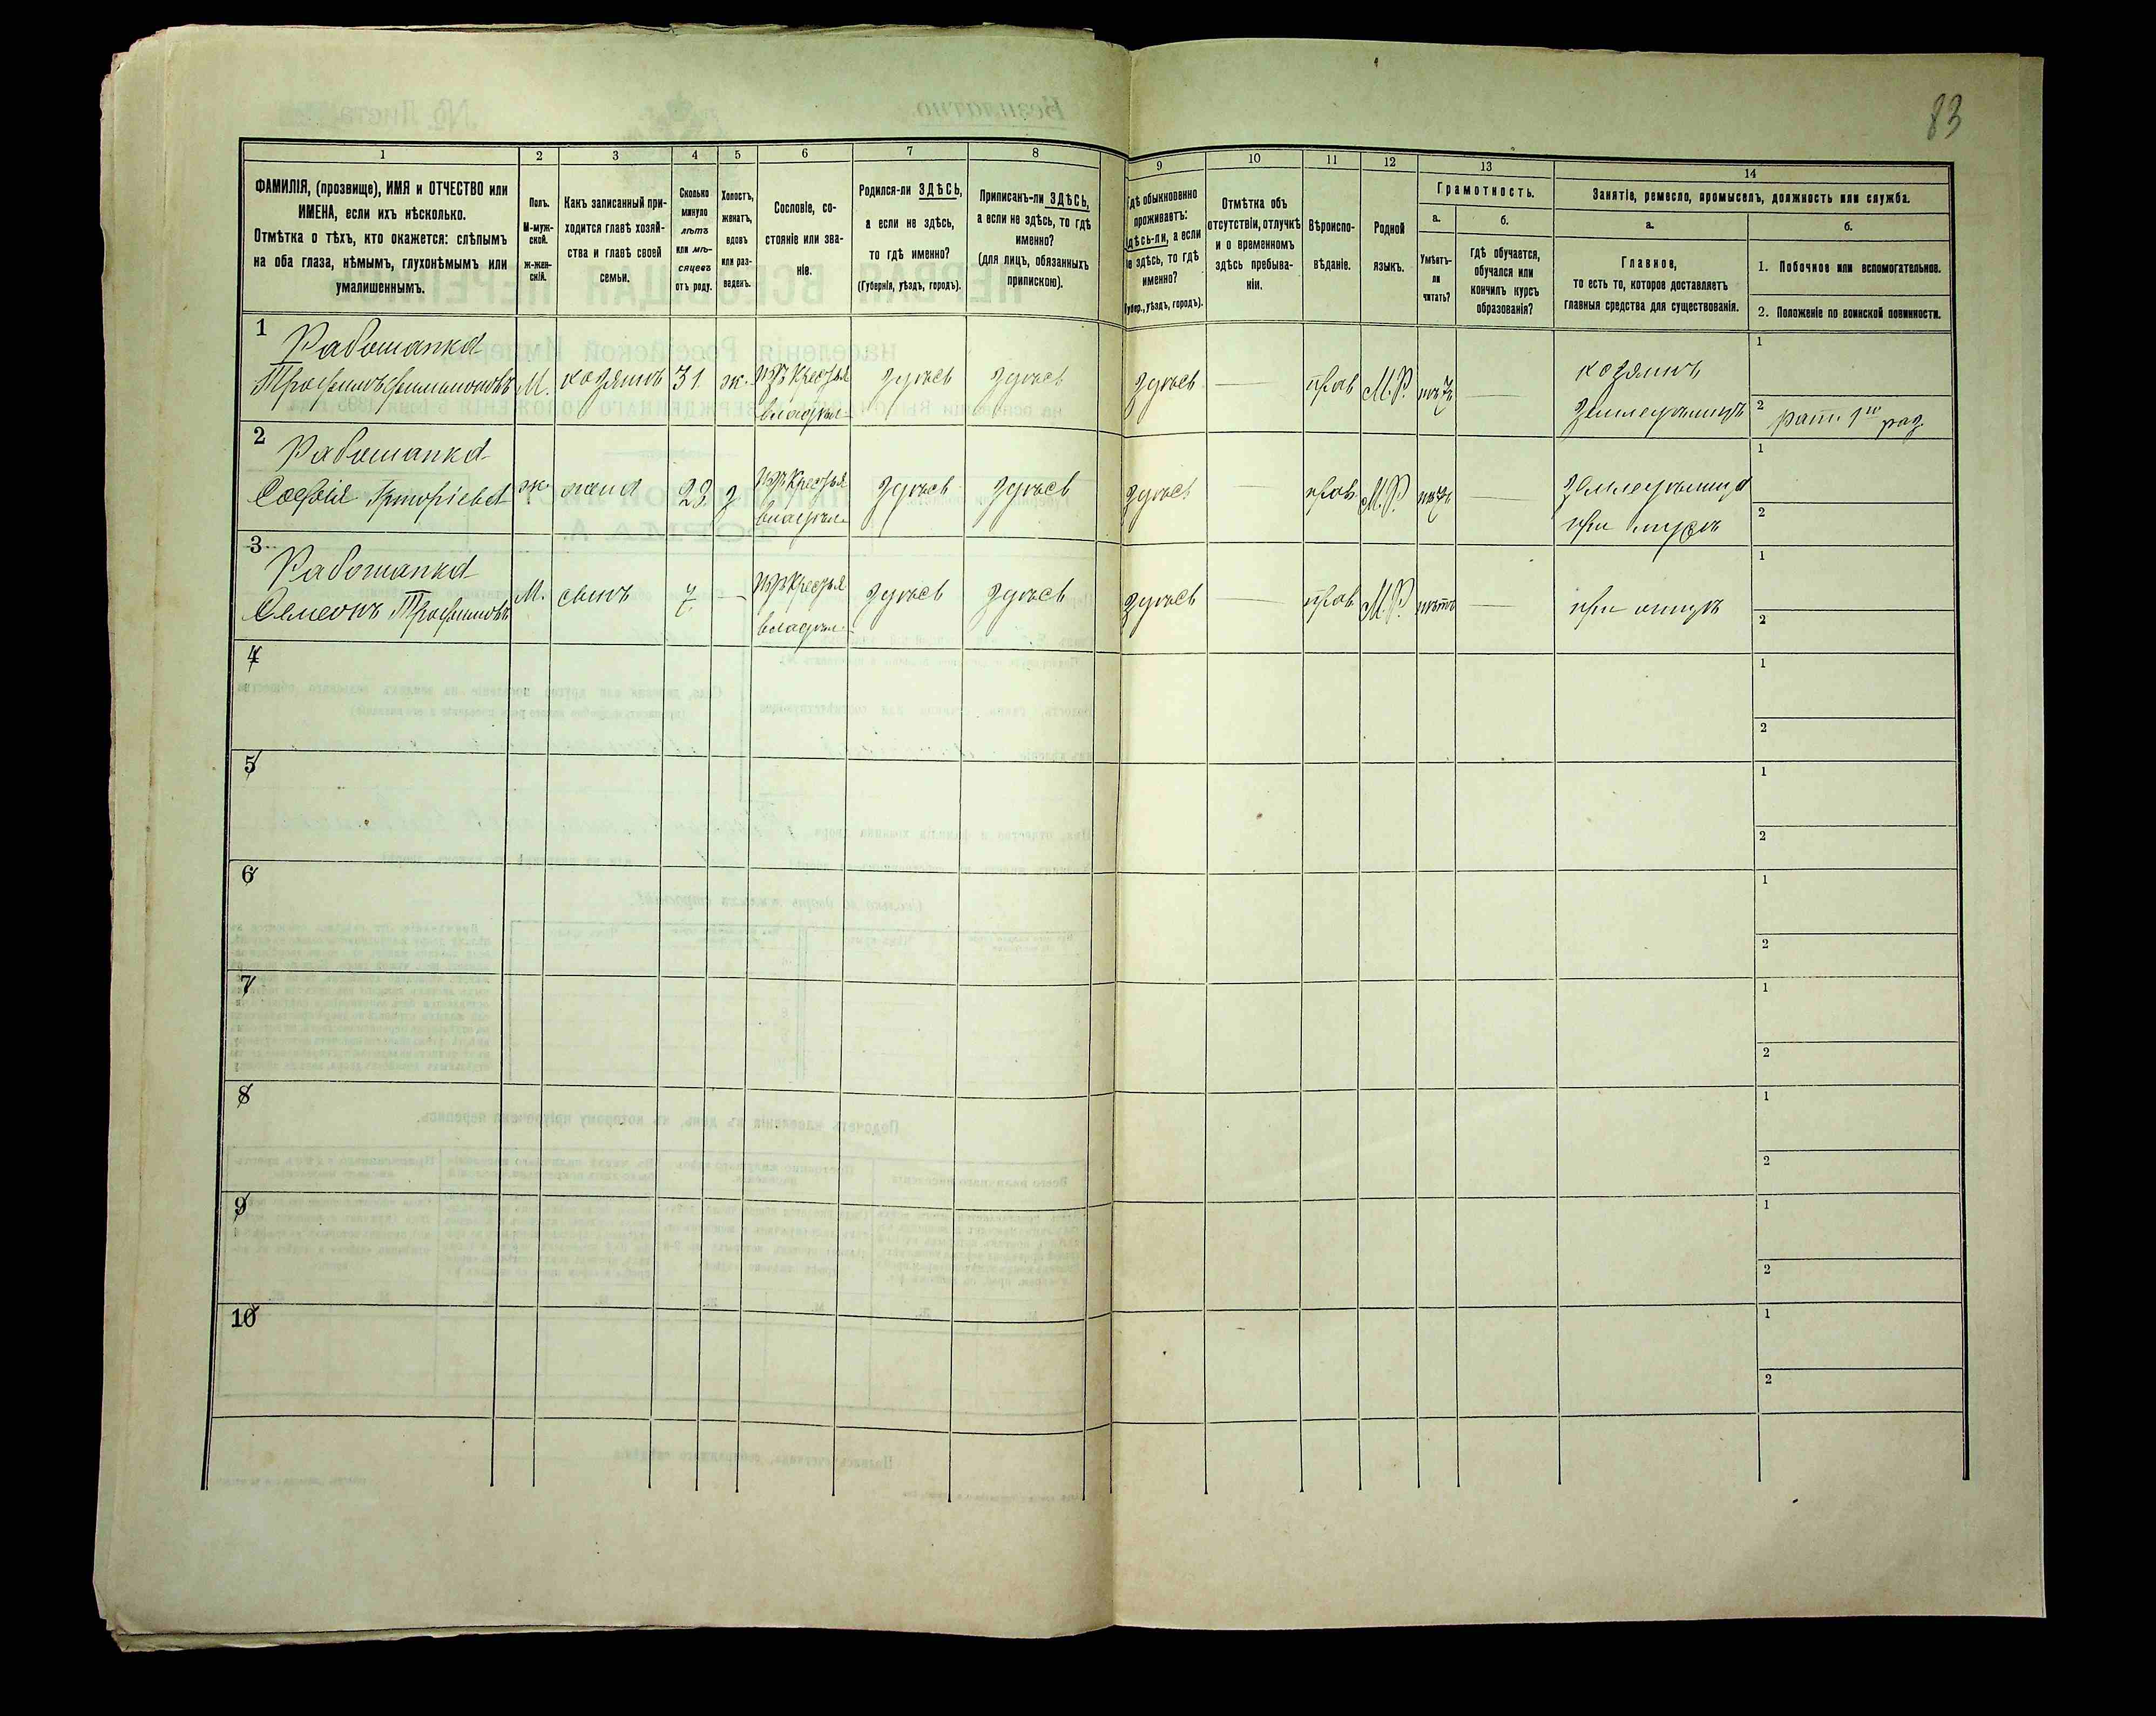 83
1
2
3
4
5
6
7
8
9
10
11
12
13
14
ФАМИЛІЯ, (прозвище), ИМЯ и ОТЧЕСТВО или
ИМЕНА, если ихъ нѣсколько.
Отмѣтка о тѣхъ, кто окажется: слѣпымъ
на оба глаза, нѣмымъ, глухонѣмымъ или
умалишеннымъ.
Полъ.
М-муж-
ской.
ж-жен-
скій.
Какъ записанный при-
ходится главѣ хозяй-
ства и главѣ своей
семьи.
Сколько
минуло
лѣтъ
или мѣ-
сяцевъ
отъ роду.
Холостъ,
женатъ,
вдовъ
или раз-
веденъ.
Сословіе, со-
стояніе или зва-
ніе.
Родился-ли ЗДѢСЬ,
а если не здѣсь,
то гдѣ именно?
(Губернія, уѣздъ, городъ).
Приписанъ-ли ЗДѢСЬ,
а если не здѣсь, то гдѣ
именно?
(для лицъ, обязанныхъ
припискою).
Гдѣ обыкновенно
проживаетъ:
здѣсь-ли, а если
не здѣсь, то гдѣ
именно?
(Губер., уѣздъ, городъ).
Отмѣтка объ
отсутствіи, отлучкѣ
и о временномъ
здѣсь пребыва-
ніи.
Вѣроиспо-
вѣданіе.
Родной
языкъ.
Грамотность.
а.
б.
Умѣетъ-
ли
читать?
Гдѣ обучается,
обучался или
кончилъ курсъ
образованія?
Занятіе, ремесло, промыселъ, должность или служба.
а.
б.
Главное,
то есть то, которое доставляетъ
главныя средства для существованія.
1. Побочное или вспомогательное.
2. Положеніе по воинской повинности.
1
Работапка
Трофимъ Филимоновъ М. хозяинъ 31. ж. изъ Крестья здѣсь здѣсь здѣсь — прав М.Р. — хозяинъ
владѣл.
земледѣлецъ
1
2 Рат. 1го раз.
2
Работапка
Софія ж. жена 23 з изъ Крестья здѣсь здѣсь здѣсь — прав М.Р. — земледѣлица
владѣл.
при мужѣ
1
2
3
Работапка
Семеонъ Трофимовъ М. сынъ 7. — изъ Крестья здѣсь здѣсь здѣсь — прав М.Р. нѣтъ — при отцѣ
владѣл.
1
2
4
1
2
5
1
2
6
1
2
7
1
2
8
1
2
9
1
2
10
1
2